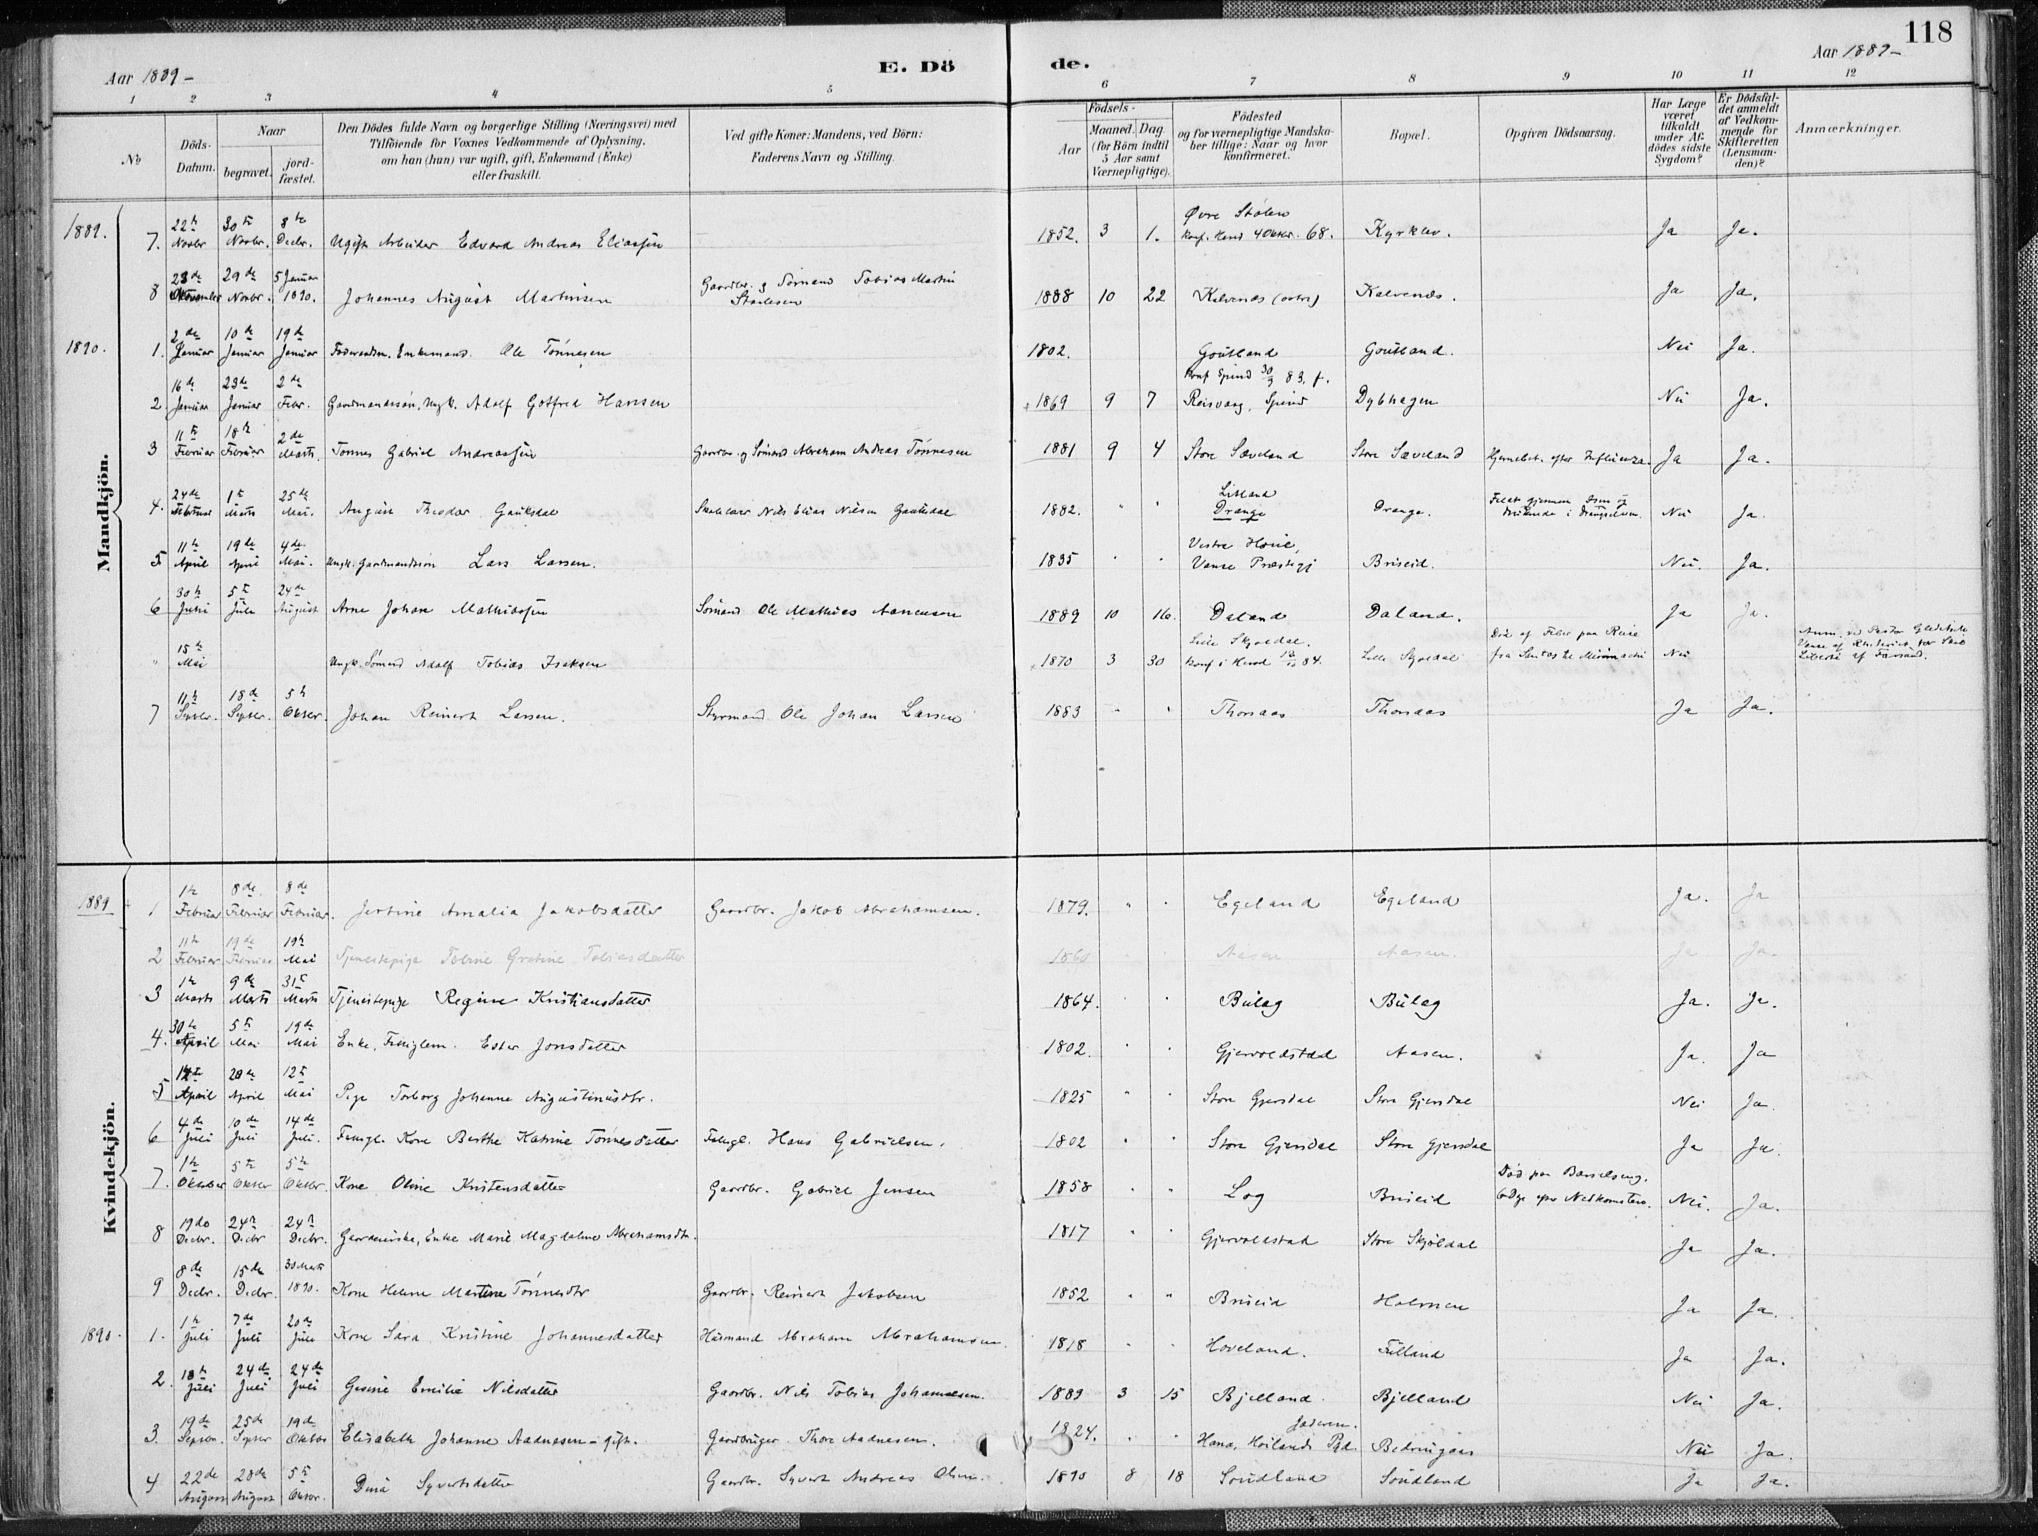 118
Aar 1889- E. Dö de. Aar 1889-
1 2 3 4 5 6 7 8 9 10 11 12
No
Döds-Datum.
Naar
begravet.
jord-fæstet.
Den Dödes fulde Navn og borgerlige Stilling (Næringsvei) med
Tilföiende for Voxnes Vedkommende af Oplysning,
om han (hun) var ugift, gift, Enkemand (Enke)
eller fraskilt.
Ved gifte Koner: Mandens, ved Börn:
Faderens Navn og Stilling.
Födsels-
Aar
Maaned. Dag
(for Börn indtil
5 Aar samt
Værnepligtige).
Födested
og for værnepligtige Mandska-
ber tillige: Naar og hvor
konfirmeret.
Bopæl.
Opgiven Dödsaarsag.
Har Læge
været
tilkaldt
under Af-
dödes sidste
Sygdom?
Er Dödsfal-
det anmeldt
af Vedkom-
mende for
Skifteretten
(Lensman-
den)?
Anmærkninger.
Mandkjön.
1889. 7. 22de Novbr 30te Novbr. 8de Decbr. Ugift Arbeider Edvard Andreas Eliassen 1852. 3 1. Øvre Stølen Konf. Herad 4 Oktbr. 68. Kyrklev. Ja Ja.
8 23de November 29de Novbr. 5 Januar 1890. Johannes August Martinsen Gaardbr. og Sømand Tobias Martin 1888 10 22 Kalvenes (østre) Kalvenes. Ja Ja.
1890. 1. 2de Januar 10de Januar 19de Januar Føderaadsm. Enkemand Ole Tønnesen 1802. Goutland Goutland. Nei Ja.
2. 16de Januar 23de Januar 2de Febr. Gaardmandssøn, Ungk. Adolf Gotfred Hansen 1869 9 7 Konf Spind 30/9 83. Reisvaag, Spind Dybhagen Nei Ja.
3 11te Februar 18de Februar 2de Marts Tønnes Gabriel Andreassen Gaardbr. og Sømand Abraham Andreas Tønnesen 1881 9 4 Store Sæveland Store Sæveland Hjernebet. efter Influenza. Ja Ja.
4. 24de Februar 1te Marts 25de Mai. August Theodor Gauksdal Skolelærer Nils Elias Nilsen Gauksdal 1882. " " Litland Drange Drange. Faldt gjennem Isen og druknede i Drangsdam. Nei Ja.
5 11te April 19de April 4de Mai. Ungk. Gaardmandssøn Lars Larsen. 1835 " " Vestre Houie, Vanse Præstegj Briseid. Nei. Ja.
6 30te Juni 5te Juli 24de August Arne Johan Mathiassen Sømand Ole Mathias Aanensen 1889 10 16. Daland Daland. Ja Ja.
" 15de Mai Ungk. Sømand Adolf Tobias Isaksen 1870 3 30 Lille Skjoldal. Konf i Herad 84. Lille Skjoldal Død af Feber paa Reise fra Santos til Nei
7 11te Septbr. 18de Septbr. 5te Oktbr. Johan Reinert Larsen. Styrmand Ole Johan Larsen 1883 " " Thorsaas Thorsaas Ja Ja.
Kvindekjön.
1889 1 1te Februar 8de Februar 8de Februar. Jertine Amalia Jakobsdatter Gaardbr. Jakob Abrahamsen. 1879. " " Egeland Egeland Ja. Ja
2 11te Februar 19de Februar 19de Mai Tjenestepige Toline Gretine Tobiasdatter 1860 Aasen Aasen. Ja Ja.
3 1te Marts 9de Marts 31te Marts Tjenestepige Regine Kristiansdatter 1864. " " Bulag Bulag Ja. Ja.
4. 30te April 5te Mai 19de Mai Enke, Fattiglem. Ester Jonsdatter 1802. " " Gjervoldstad Aasen. Ja. Ja
5 April 20de April 12te Mai Pige Torborg Johanne Augustinusdtr. 1825 " " Store Gjersdal Store Gjersdal Nei Ja.
6 4de Juli 10de Juli 14de Juli. Kone Berthe Katrine Tønnesdatter Hans Gabrielsen. 1802 " " Store Gjersdal Store Gjersdal Ja Ja.
7. 1te Oktober 5te Oktbr 5te Oktbr. Kone Oline Kristensdatter Gaardbr. Gabriel Jensen 1858 " " Log Briseid Død paa Barselseng, 6 Dge efter Nedkomsten. Nei. Ja.
8 19de Decbr. 24de Decbr 24de Decbr. Enke Marie Magdalene Abrahamsdtr. 1817 " " Gjervoldstad Store Skjöldal Ja Ja.
9 8de Decbr. 15de Decbr. 30 Marts 1890. Kone Helene Martine Tønnesdtr Gaardbr. Reinert Jakobsen 1852 " " Briseid Holmen Ja Ja.
1890. 1. 1te Juli 7de Juli 20de Juli Kone Sara Kristine Johannesdatter Husmand Abraham Abrahamsen. 1818 " " Hoveland. Fulland Ja Ja.
2. 18de Juli 24de Juli 24de Juli Gesine Emilie Nilsdatter Gaardbr. Nils Tobias Johannesen. 1889 3 15 Bjelland. Bjelland Nei Ja.
3. 19de Septbr. 25de Septbr 19de Oktbr Elisabeth Johanne Aadnesen - gift. Gaardbruger Thore Aadnesen. 1824. " " Hana, Høilands Pgd. Jæderen. Nei Ja.
4 22de August 28de August 5te Oktbr. Dina Syvertsdatter Gaardbr. Syvert Andreas Olsen. 1890 8 18 Soudland Soudland Ja Ja.